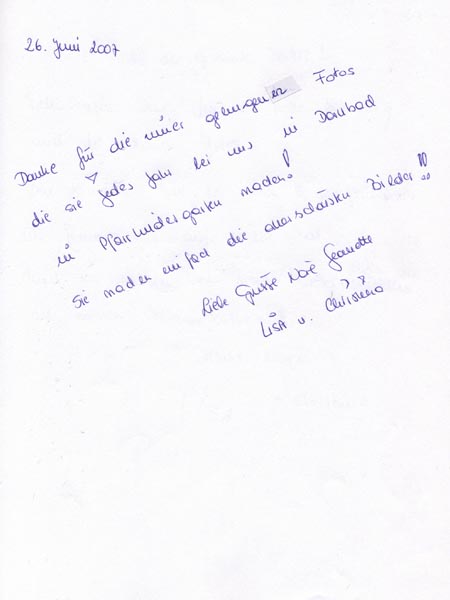 26. Juni 2007
Danke für die immer gelungenen Fotos
die sie jedes Jahr bei uns in Dombad
in Pfarrkindergarten machen!
Sie machen einfach die allerschönsten Bilder!!
Liebe Grüsse Jeanette
Lisa u. Christina